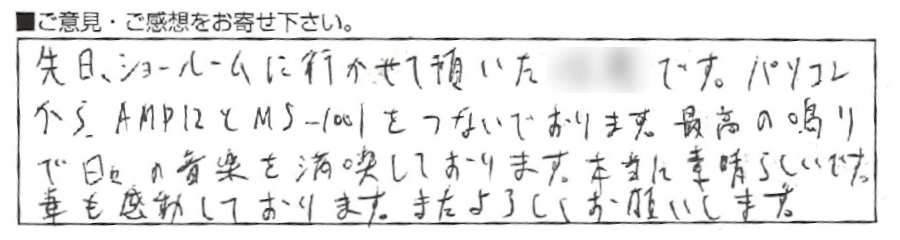 ■ご意見・ご感想をお寄せ下さい。
先日、ショールームに行かせて頂いた です。パソコン
から、AMP12とMS-1001をつないでおります。最高の鳴り
で日々の音楽を満喫しております。本当に素晴らしいです。
妻も感動しております。またよろしくお願いします。